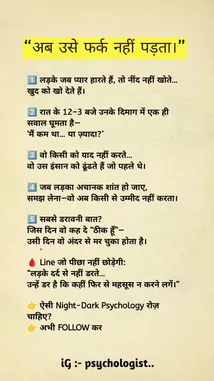 “अब उसे फर्क नहीं पड़ता।”
1 लड़के जब प्यार हारते हैं, तो नींद नहीं खोते…
खुद को खो देते हैं।
2 रात के 12–3 बजे उनके दिमाग में एक ही
सवाल घूमता है—
‘मैं कम था… या ज़्यादा?’
3 वो किसी को याद नहीं करते…
वो उस इंसान को ढूंढते हैं जो पहले थे।
4 जब लड़का अचानक शांत हो जाए,
समझ लेना—वो अब किसी से उम्मीद नहीं करता।
5 सबसे डरावनी बात?
जिस दिन वो कह दे “ठीक हूँ”—
उसी दिन वो अंदर से मर चुका होता है।
🩸 Line जो पीछा नहीं छोड़ेगी:
“लड़के दर्द से नहीं डरते…
उन्हें डर है कि कहीं फिर से महसूस न करने लगें।”
👉 ऐसी Night-Dark Psychology रोज़
चाहिए?
👉 अभी FOLLOW कर
iG :- psychologist..